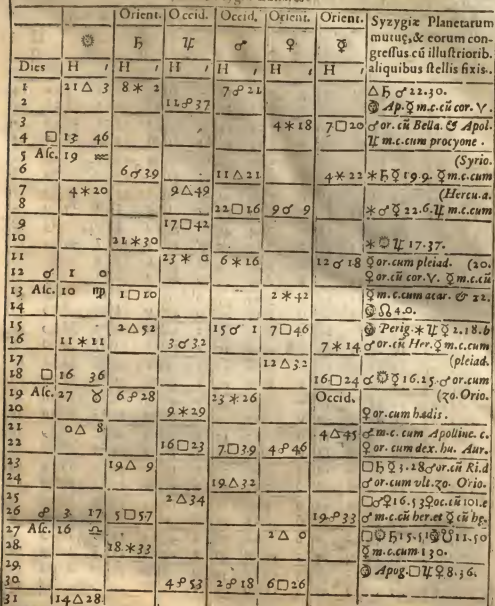 Orient. Occid. Occid. Orient. Orient. Syzygiæ Planetarum
☉ ♄ ♃ ♂ ♀ ☿ mutuę, & eorum con-
gressus cũ illustriorib.
Dies H ′ H ′ H ′ H ′ H ′ H ′ aliquibus stellis fixis.
1 21 △ 3 8 ⚹ 2 7 ☍ 21 △ ♄ ♂ 22.30.
2 11 ☍ 37 Ap. ☿ m.c. cũ cor. V.
3
4 □ 13 46 4 ⚹ 18 7 □ 20 ♂ or. cũ Bella. & Apol.
♃ m.c. cum procyone.
5 Asc. 19 ♒ (Syrio.
6 6 ☌ 39 11 △ 21 4 ⚹ 22 ⚹ ♄ ☿ 19.9. ☿ m.c. cum
7 4 ⚹ 20 9 △ 49 (Hercu.a.
8 22 □ 16 9 ☌ 9 ⚹ ♂ ☿ 22.6. ♃ m.c. cum
9 17 □ 42
10 21 ⚹ 30 ⚹ ☉ ♃ 17.37.
11 23 ⚹ 0 6 ⚹ 16 12 ☌ 18 ♀ or. cum pleiad. (20.
12 ☌ 1 0 ♀ or. cũ cor. V. ☿ m.c. cũ
13 Asc. 10 ♍ 1 □ 10 2 ⚹ 42 ☿ m.c. cum acar. & 22.
14 ☊ 4.0.
15 2 △ 52 15 ☌ 1 7 □ 46 Perig. ⚹ ♃ ☿ 2.18.b
16 11 ⚹ 11 3 ☌ 32 7 ⚹ 14 ♂ or. cũ Her. ☿ m.c. cum
17 12 △ 32 (pleiad.
18 □ 16 36 16 □ 24 ☌ ☉ ☿ 16.25. ♂ or. cum
19 Asc. 27 ♉ 6 ☍ 28 23 ⚹ 26 Occid. (30. Orio.
20 9 ⚹ 29 ♀ or. cum hædis.
21 0 △ 8 4 △ 45 ♂ m.c. cum Apolline. c.
22 16 □ 23 7 □ 39 4 ☍ 46 ♀ or. cum dex. hu. Aur.
23 19 △ 9 □ ♄ ☿ 3.28 ♂ or. cũ Ri.d
24 19 △ 32 ♂ or. cum vlt. 30. Orio.
25 2 △ 34 □ ♂ ♀ 16.53 ♀ oc. cũ 101.e
26 ☍ 3 17 5 □ 57 19 ☍ 33 ♂ m.c. cũ her. et ☿ cũ
27 Asc. 16 ♎ 2 △ 0 □ ☉ ♄ 15.51 ☋ 11.50
28 18 ⚹ 33 ☿ m.c. cum 130.
29
30 4 ☍ 53 2 ☍ 18 6 □ 26 Apog. □ ♃ ♀ 8.36.
31 14 △ 28